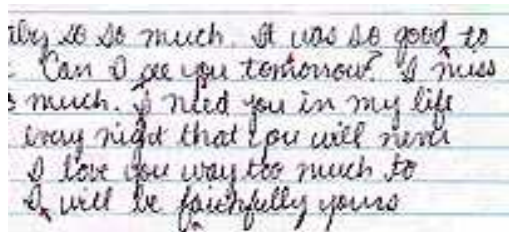 so so much. It was so good to
Can I see you tomorrow? I miss
much. I need you in my life
every night that you will never
I love you way too much to
I will be faithfully yours